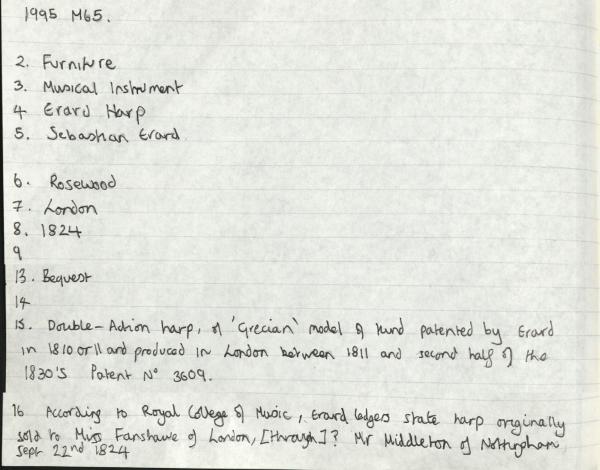 1995 M65.
2. Furniture
3. Musical Instrument
4 Erard Harp
5. Sebastian Erard
6. Rosewood
7. London
8. 1824
9
13. Bequest
14
15. Double-Action harp, of 'Grecian' model of kind patented by Erard
in 1810 or 11 and produced in London between 1811 and second half of the
1830's Patent No 3609.
16 According to Royal College of Music, Erard ledgers state harp originally
sold to Miss Fanshawe of London, [through]? Mr Middleton of Nottingham
Sept 22nd 1824